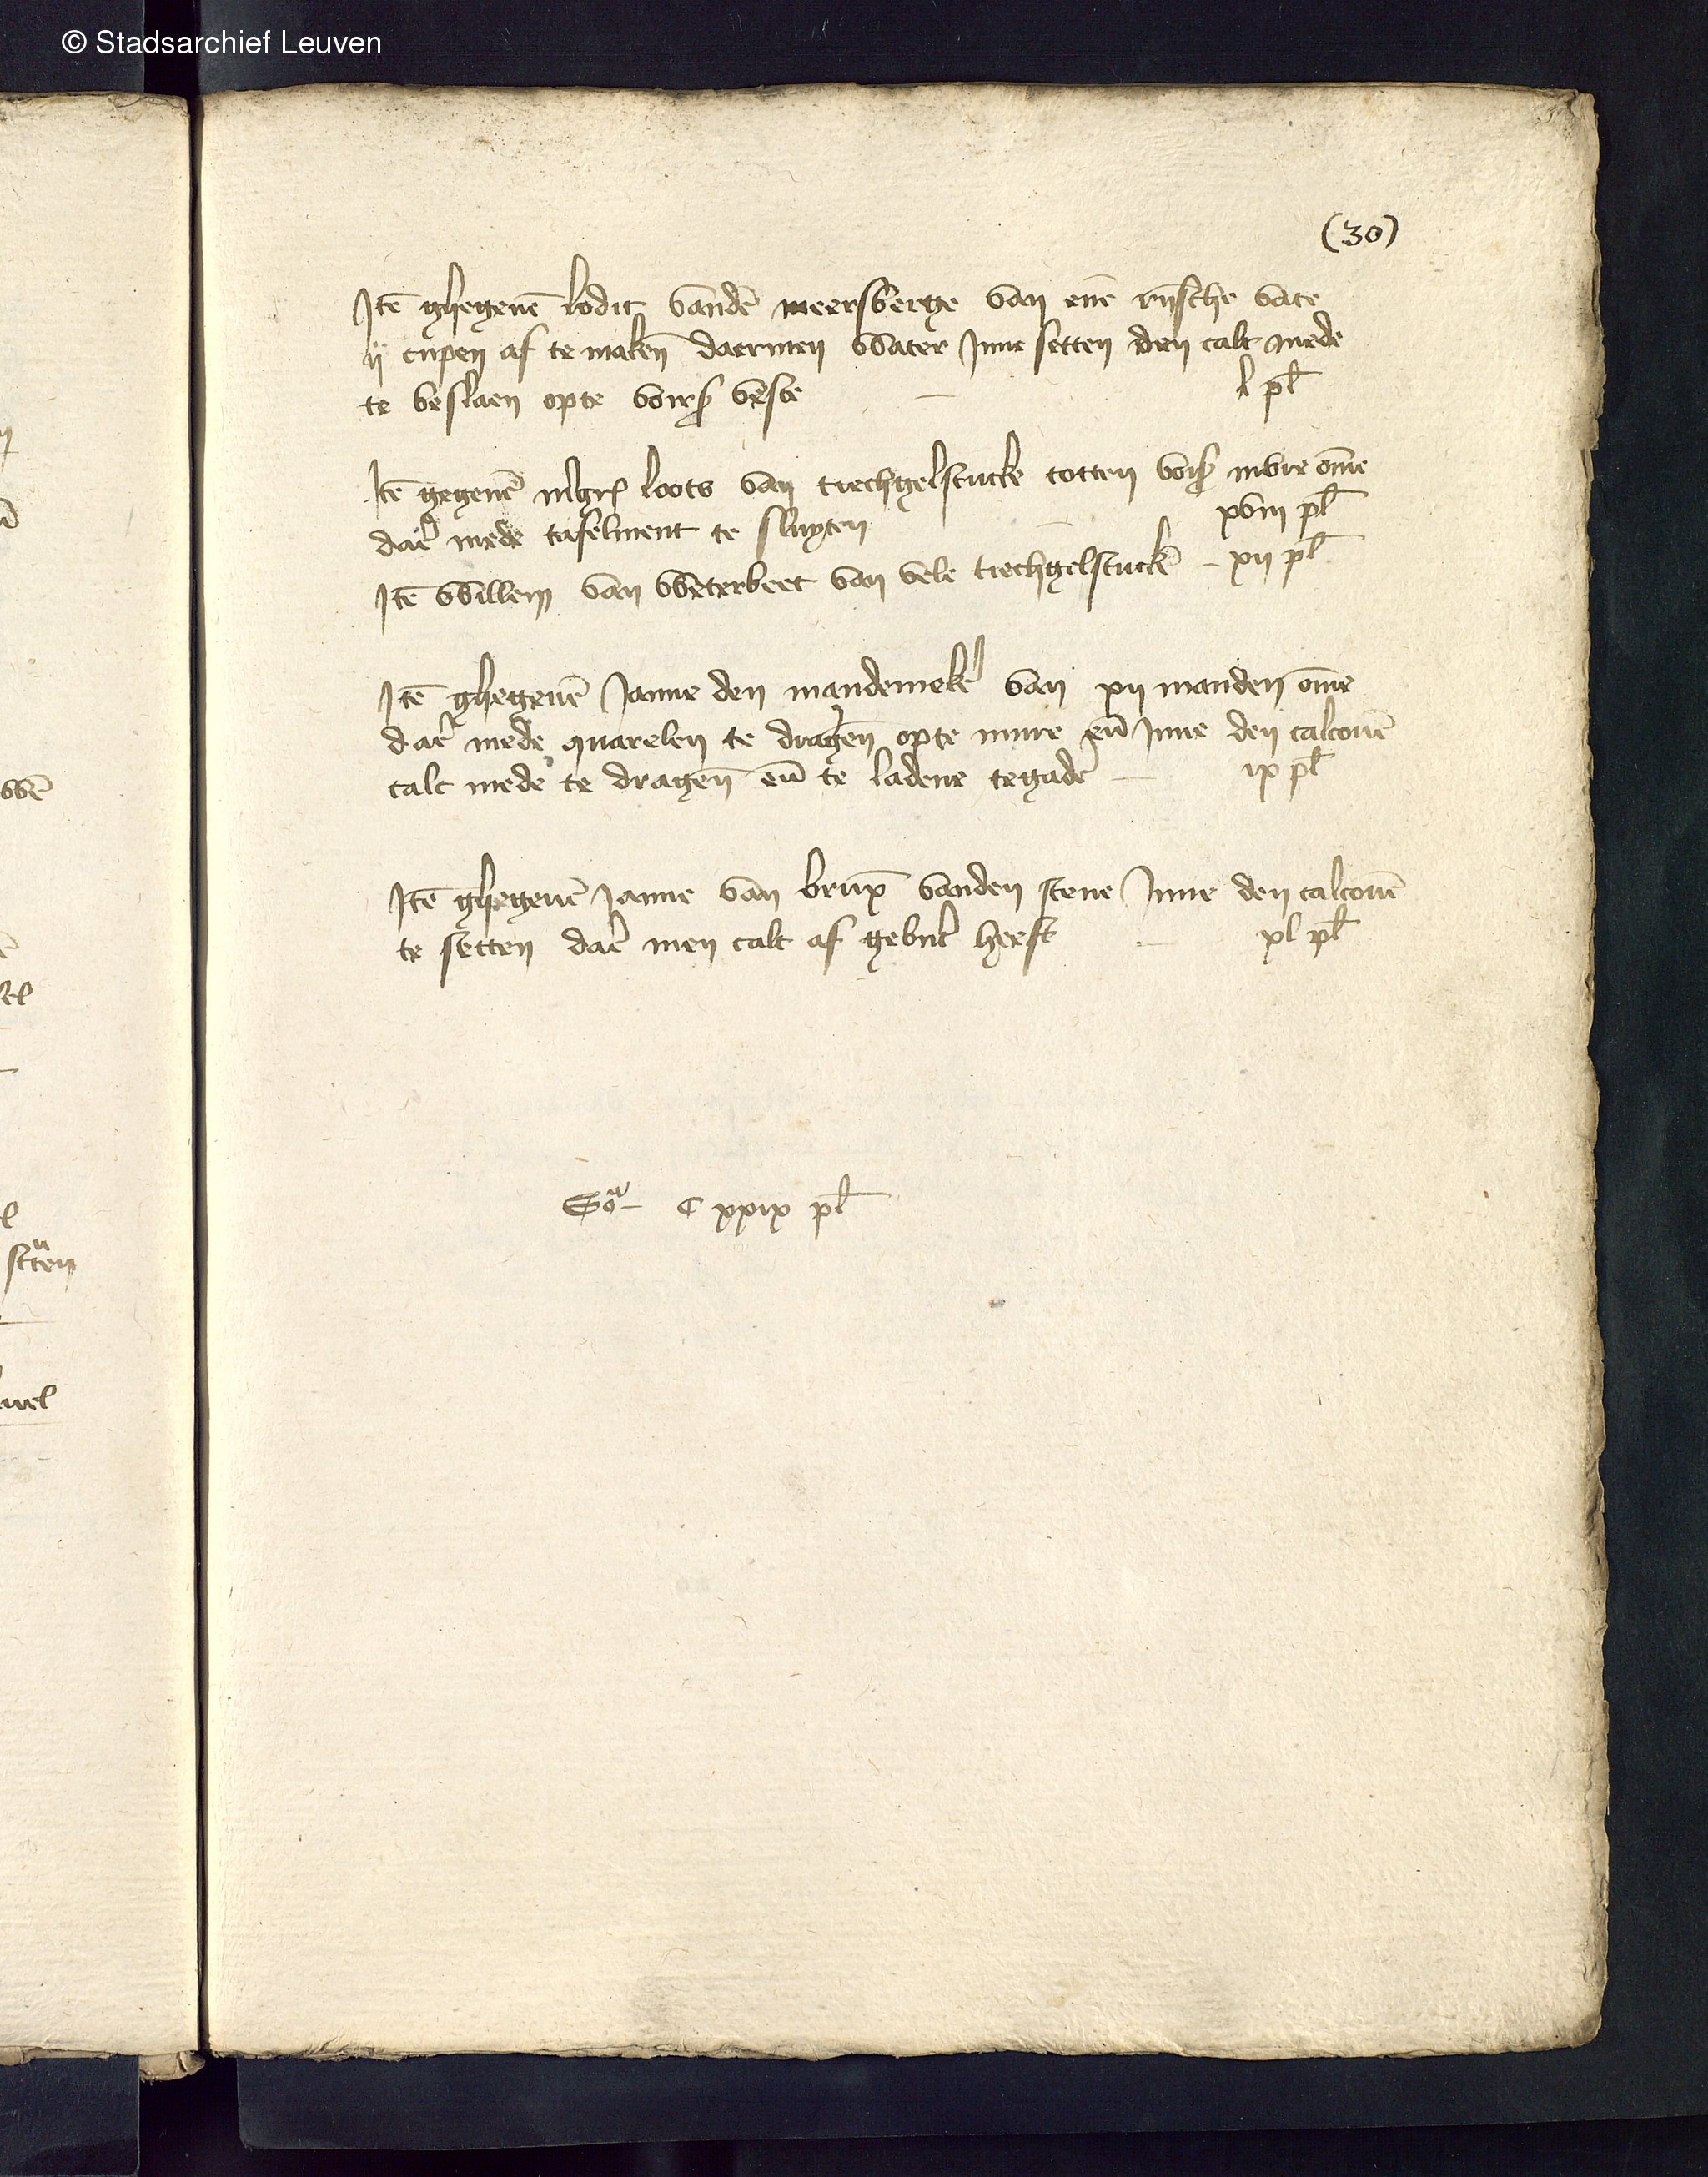 © Stadsarchief Leuven
(30)
Itē ghegeuē lodic vandē meersberge van enē rijssche vate
ij cupen af te makē daermen water Inne setten den calc mede
te beslaen opte voirs veste – l pl
Itē gegeuē mergriet loots van tiechgelstucke totten voirs mure ōme
daer mede tafelment te sluyten – xviij pl
Itē willem van weterbeet van vele tiechgelstuckē – xij pl
Itē ghegeuē Janne den mandemekere van xij manden ōme
daer mede quarelen te dragen opte mure eñ Inne den calcouē
calc mede te dragen eñ te ladene tegader – ix pl
Itē ghegeuē Janne van vanden stene Inne den calcouē
te setten daer men calc af heeft – xl pl
Soᵃ – C xxix pl